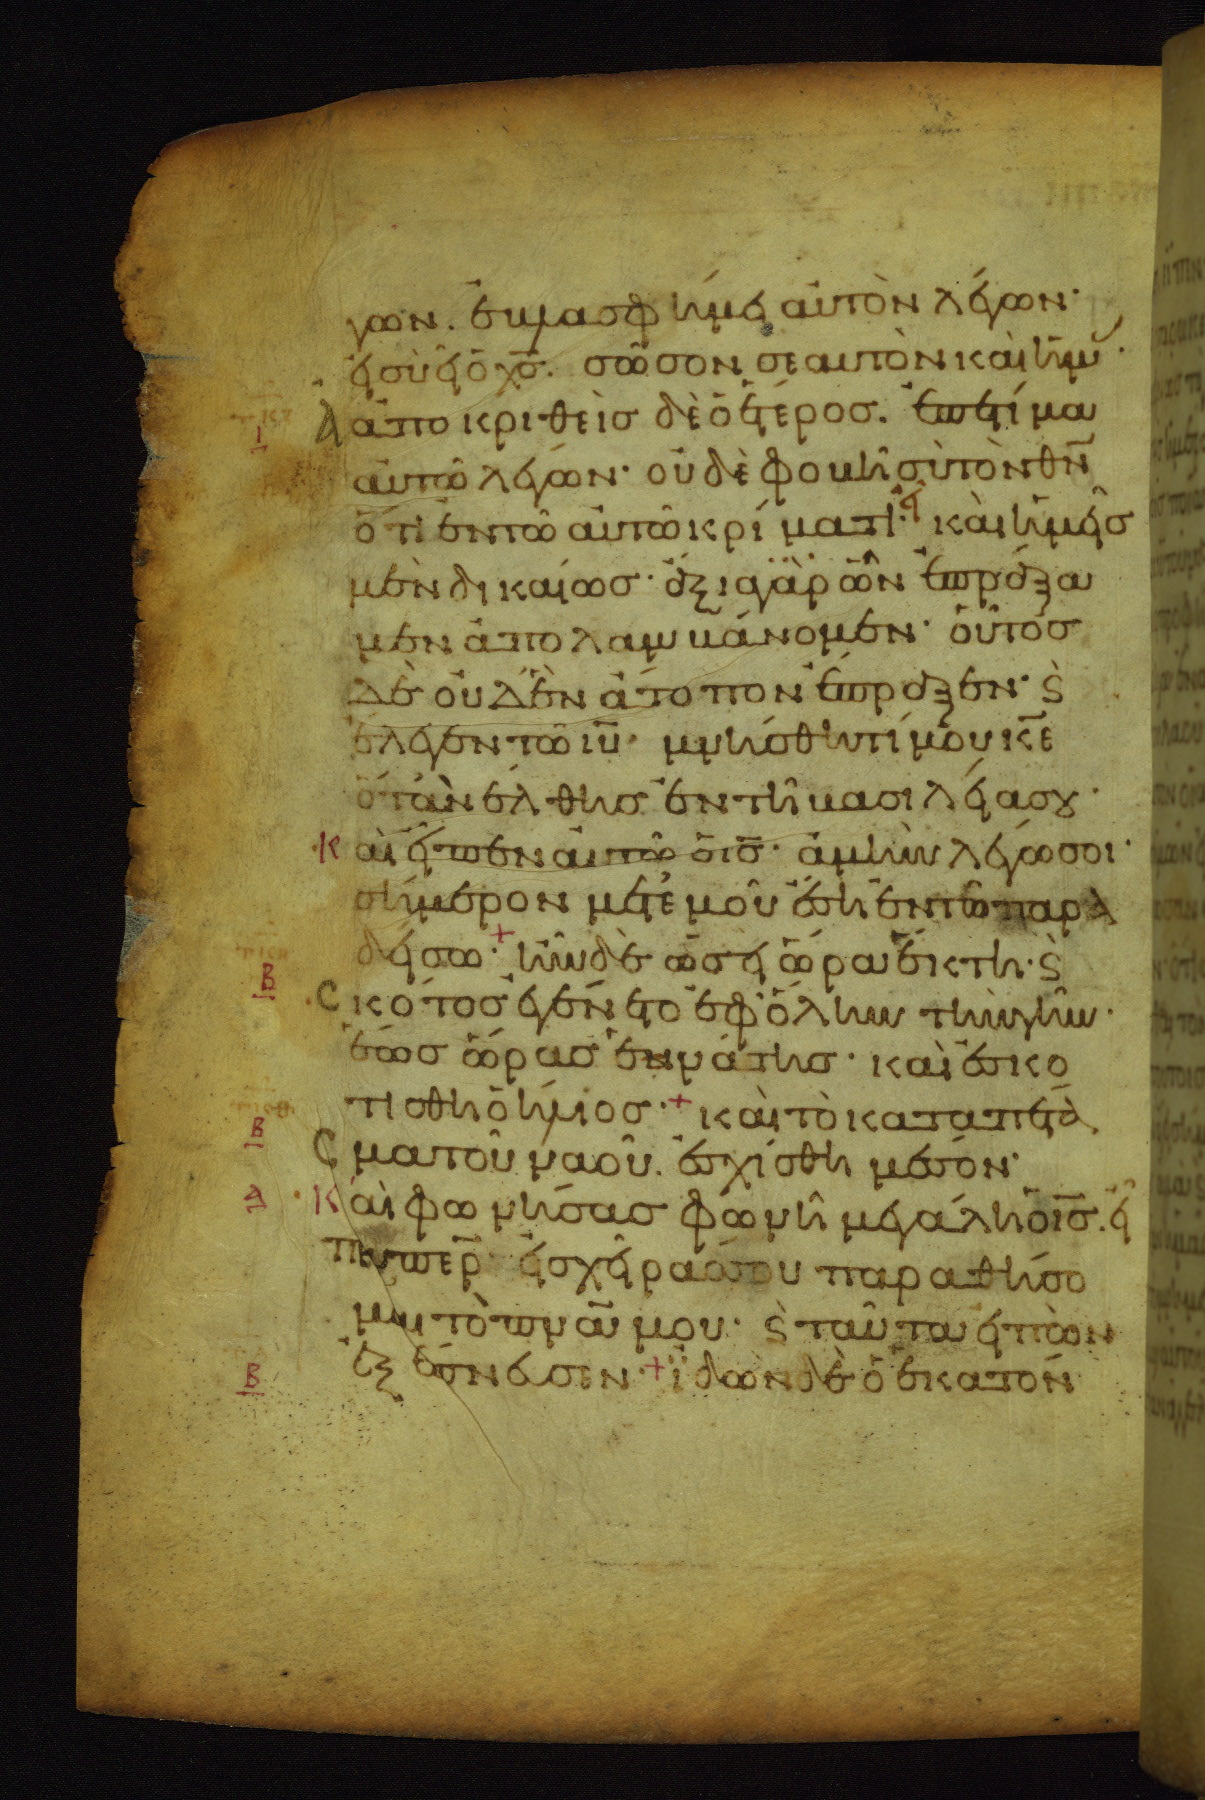 γων. ἐβλασφήμει αὐτὸν λέγων·
εἰ σὺ εἶ ὁ χς. σῶσον σεαυτὸν καὶ ἡμ
ἀποκριθεὶς δὲ ὁ ἕτερος. ἐπετίμα
αὐτῶ λέγων· οὐδὲ φοβῆ σὺ τὸν θν
ὅτι ἐν τῶ αὐτῶ κρίματι εἶ· καὶ ἡμεῖς
μὲν δικαίως· ἄξια γὰρ ὧν ἐπράξα
μεν ἀπολαμβάνομεν· οὗτος
δὲ οὐδὲν ἄτοπον ἔπραξεν· ϛ
ἔλεγεν τῶ ιυ· μνήσθητί μου κε
ὅταν ἔλθης ἐν τῆ βασιλείᾳ σου·
Καὶ εἶπεν αὐτῶ ὁ ις· ἀμὴν λέγω σοι·
σήμερον μετ ἐμοῦ ἔση ἐν τῶ παρα
δείσω· + ἦν δὲ ὡσεὶ ὥρα ἕκτη· ϛ
σκότος ἐγένετο ἐφ ὅλην τὴν γῆν·
ἕως ὥρας ἐννάτης· καὶ ἐσκο
τίσθη ὁ ἥλιος· + καὶ τὸ καταπέτα
σμα τοῦ ναοῦ. ἐσχίσθη μέσον·
Καὶ φωνήσας φωνῆ μεγάλη ὁ ις. εἶ
πεν περ εἰς χεῖράς σου παραθήσο
μαι τὸ πνα μου· ϛ ταῦτα εἰπὼν
ἐξέπνευσεν· + ἰδὼν δὲ ὁ ἑκατόν